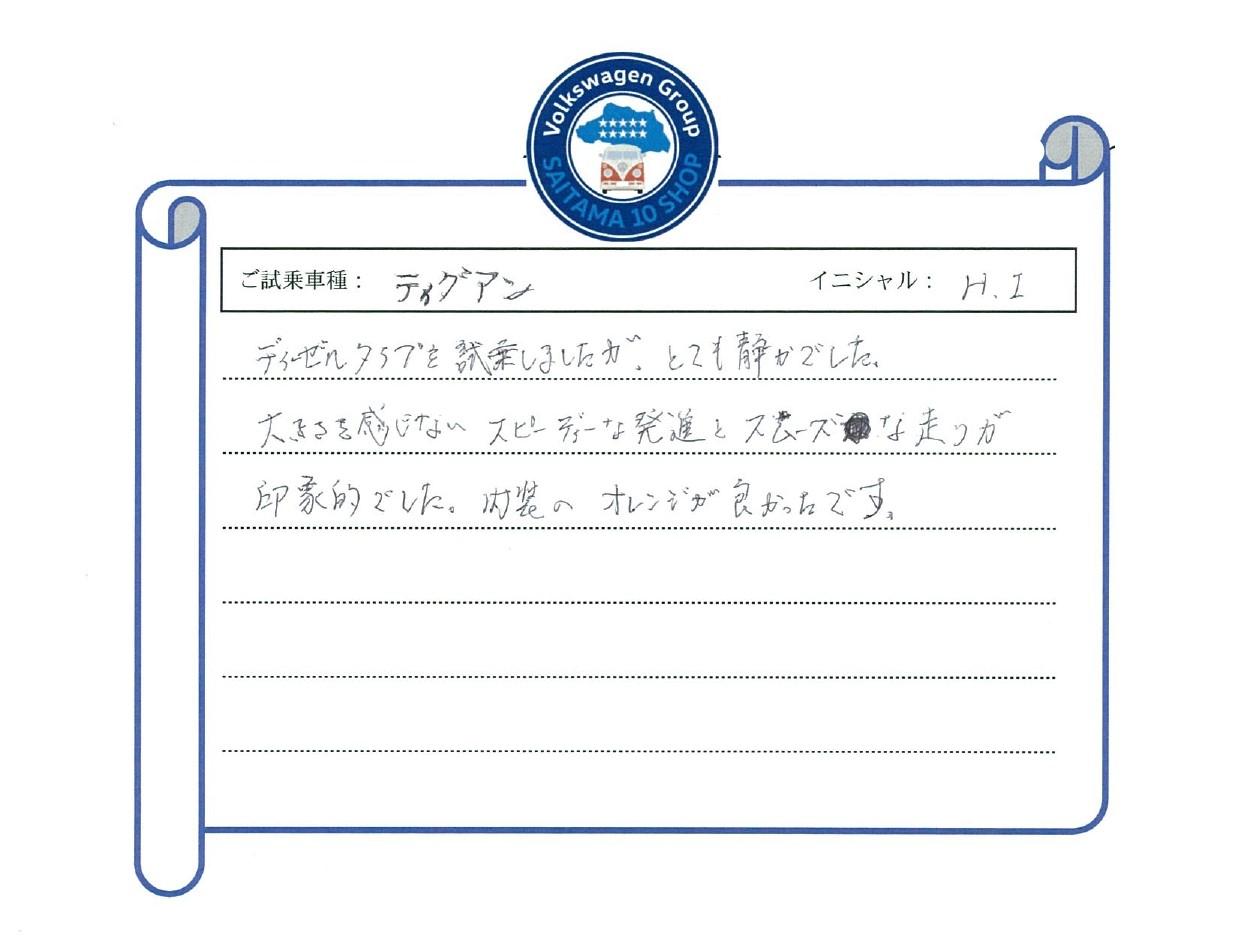 Volkswagen Group
SAITAMA 10 SHOP
ご試乗車種： ティグアン イニシャル： H.I
ディーゼルクラブを試乗しましたが、とても静かでした。
大きさを感じない スピーディーな発進と スムーズな走りが
印象的でした。内装の オレンジが 良かったです。